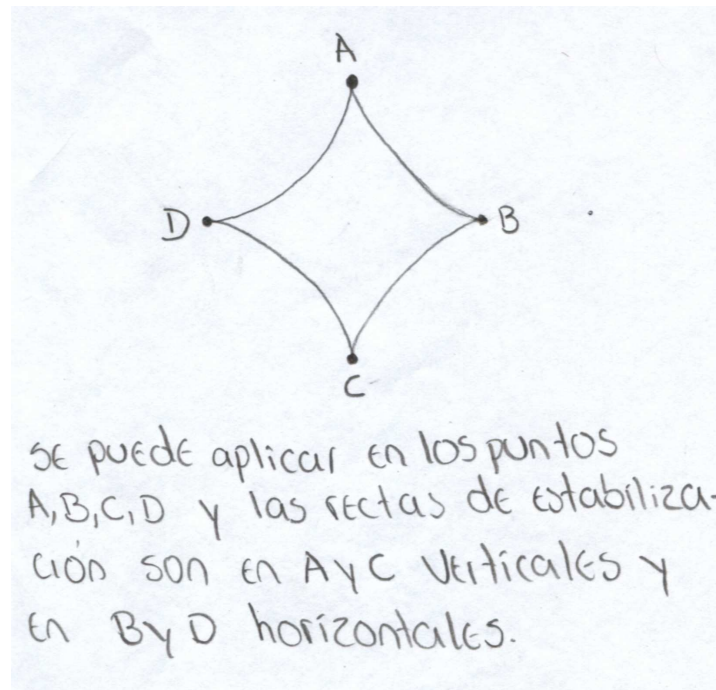 A
D
B
C
se puede aplicar en los puntos
A,B,C,D y las rectas de estabiliza-
ción son en A y C verticales y
en B y D horizontales.